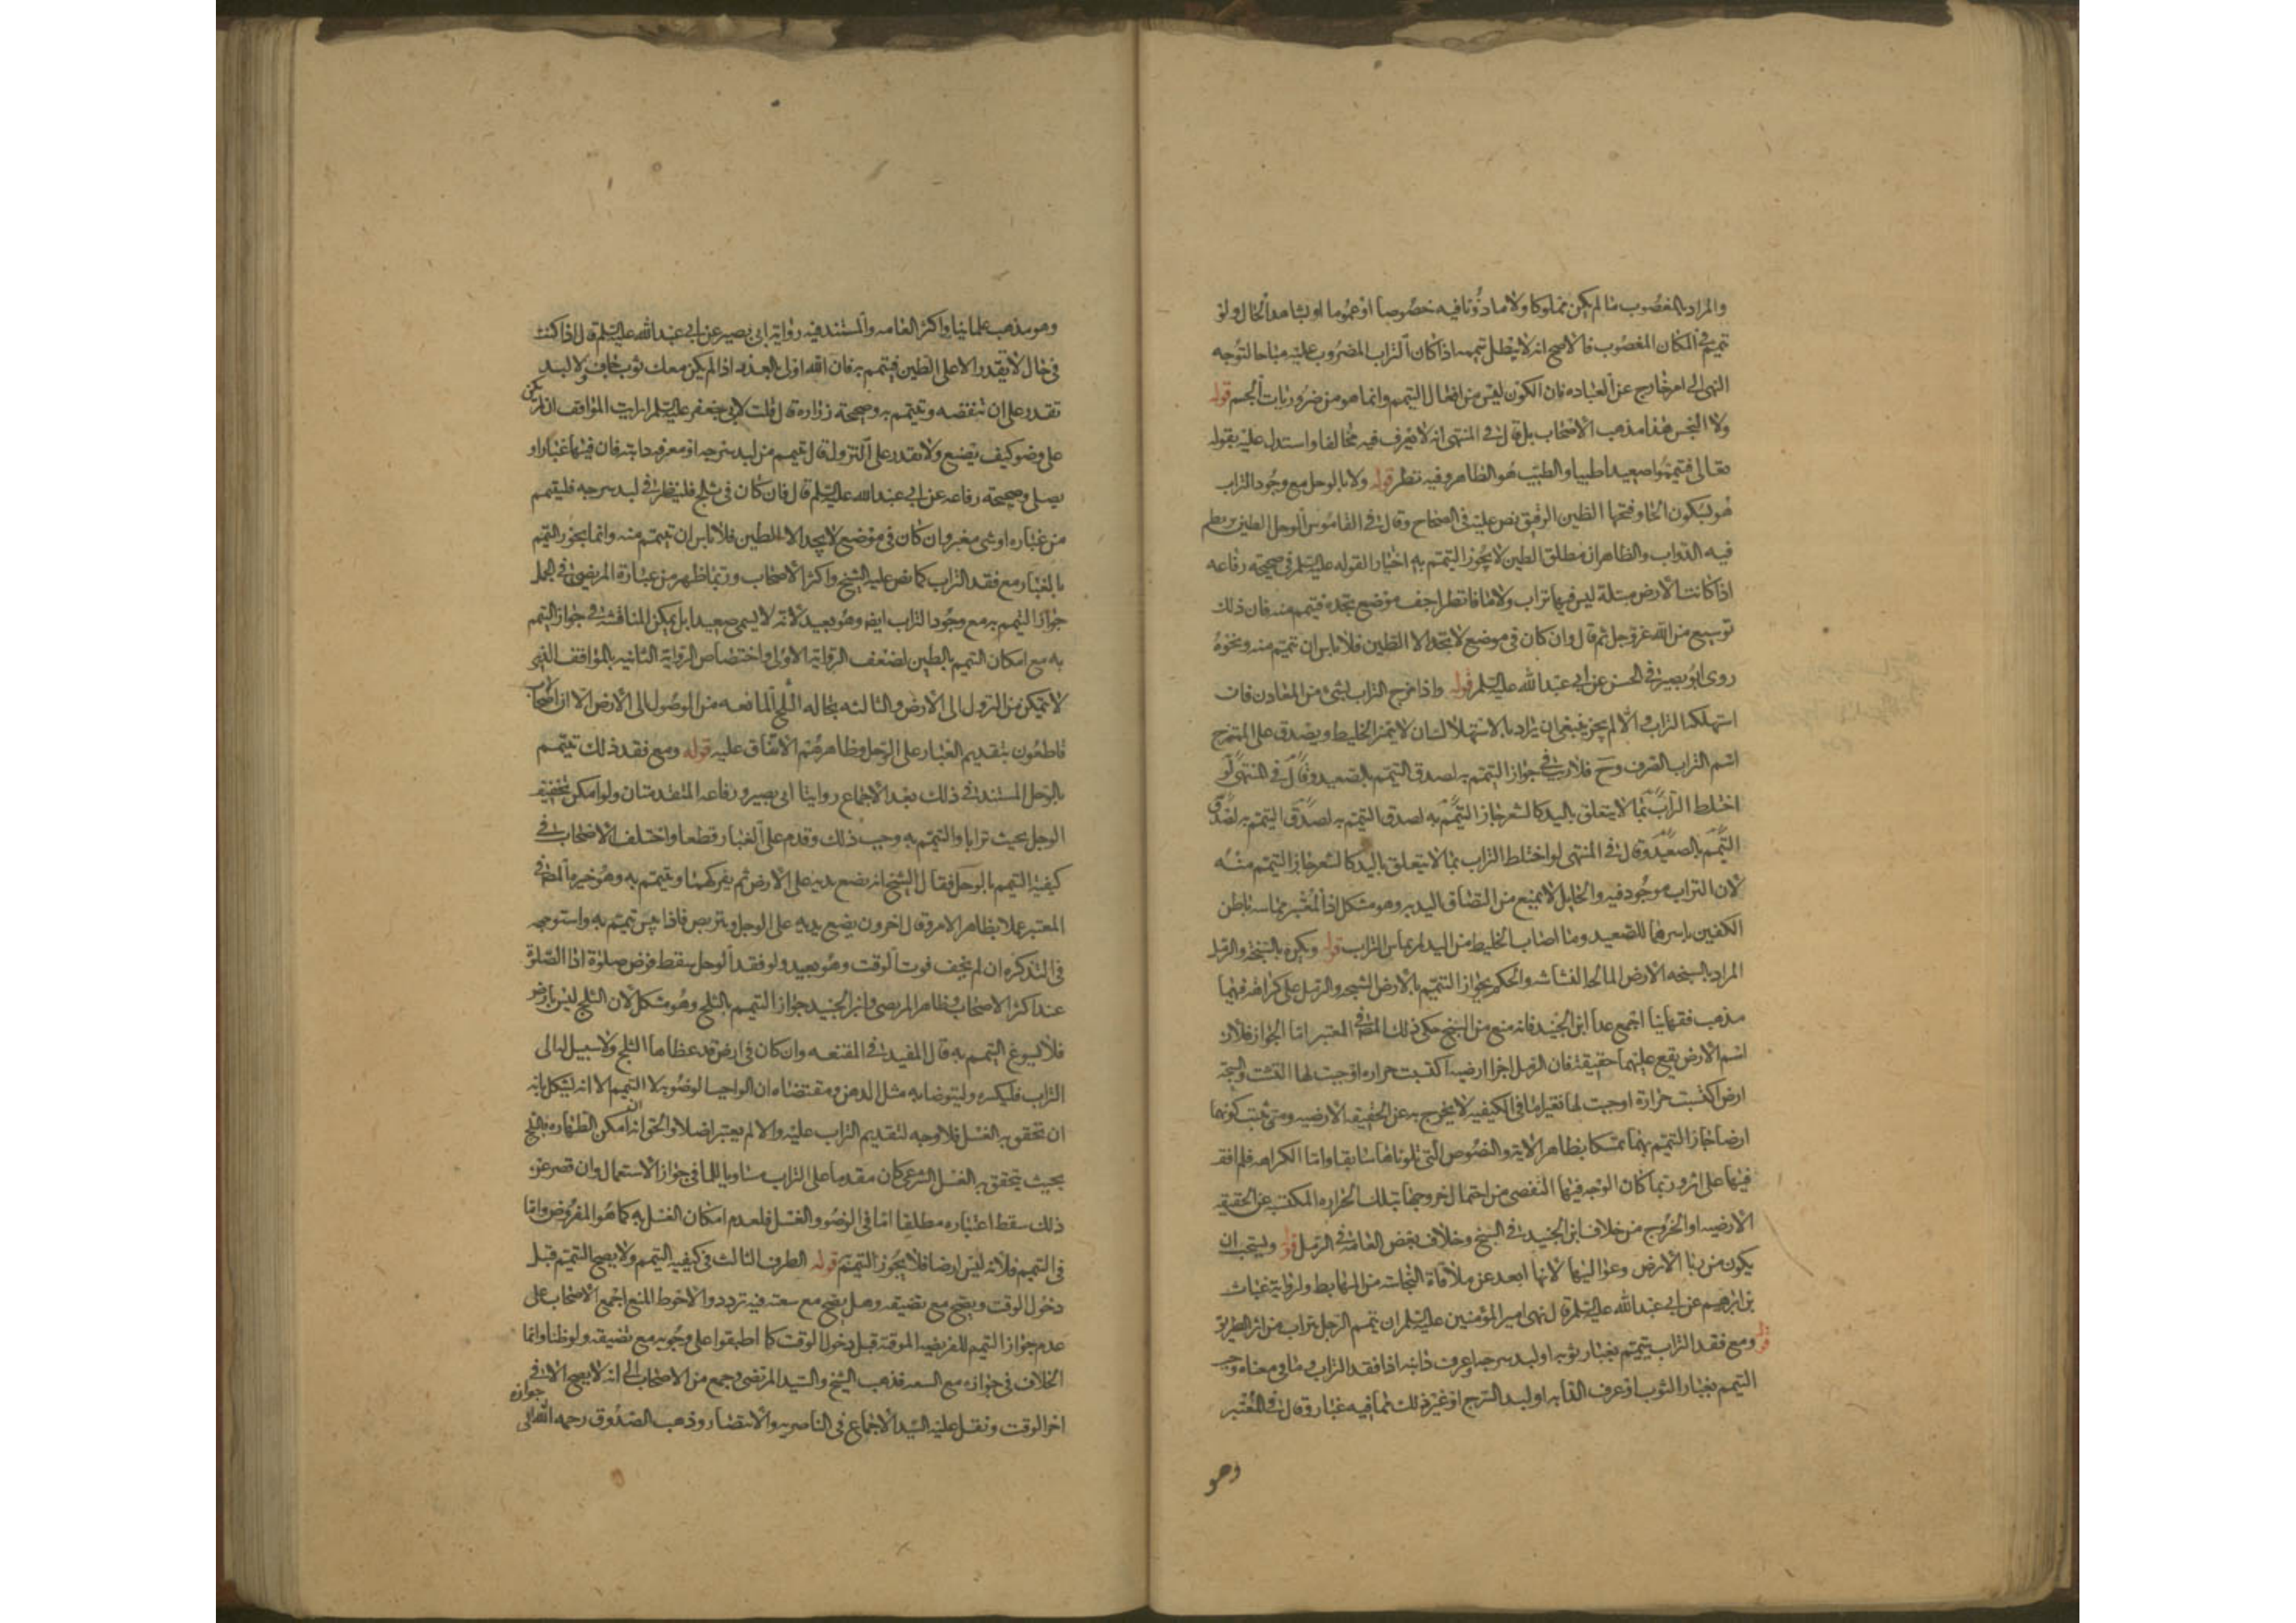 والمراد بالمغصوب ما لم يكن مملوكا ولا ماذونا فيه خصوصا او عموما او بشاهد الحال ولو
تيمم في المكان المغصوب فالاصح انه لا يبطل تيممه اذا كان التراب المضروب عليه مباحا لتوجه
النهى الى امر خارج عن العباده فان الكون ليس من افعال التيمم وانما هو من ضروريات الجسم قوله
ولا النجس هذا مذهب الاصحاب بل قال في المنتهى انه لا نعرف فيه مخالفا واستدل عليه بقوله
تعالى فتيمموا صعيدا طيبا والطيب هو الطاهر وفيه نظر قوله ولا بالوحل مع وجود التراب
هو بسكون الحا وفتحها الطين الرقيق نص عليه في الصحاح وقال في القاموس الوحل الطين يرتطم
فيه الدواب والظاهر ان مطلق الطين لا يجوز التيمم به اختيارا لقوله عليه السلم في صحيحة رفاعه
اذا كانت الارض مبتلة ليس فيها تراب ولا ما فانظر اجف موضع تجده فتيمم منه فان ذلك
توسيع من الله عز وجل ثم قال وان كان في موضع لا يجد الا الطين فلا باس ان تيمم منه ونحوه
روى ابو بصير في الحسن عن ابي عبد الله عليه السلم قوله واذا مزج التراب بشئ من المعادن فان
استهلكه التراب والا لم يجز ينبغي ان يراد بالاستهلاك ان لا يتميز الخليط ويصدق على الممتزج
اسم التراب الصرف وح فلا ريب في جواز التيمم به لصدق التيمم بالصعيد وقال في المنتهى لو
اختلط التراب بما لا يتعلق باليد كالشعر جاز التيمم به لصدق التيمم به لصدق التيمم به لصدق
التيمم بالصعيد وقال في المنتهى لو اختلط التراب بما لا يتعلق باليد كالشعر جاز التيمم منه
لان التراب موجود فيه والحايل لا يمنع من التصاق اليد به وهو مشكل اذ المعتبر مماسه باطن
الكفين باسرهما للصعيد وما اصاب الخليط من اليد لم يماس التراب قوله ويكره بالسبخة والرمل
المراد بالسبخه الارض المالحه النشاشه والحكم بجواز التيمم بالارض السبخه والرمل على كراهه فيهما
مذهب فقهاينا اجمع عدا ابن الجنيد فانه منع من السبخ حكى ذلك المص في المعتبر اما الجواز فلان
اسم الارض يقع عليهما حقيقة فان الرمل اجزا ارضيه اكتسبت حراره اوجبت لها التشتت والسبخة
ارض اكتسبت حرارة اوجبت لها تغيرا ما في الكيفيه لا يخرج به عن الحقيقه الارضيه ومتى ثبت كونهما
ارضا جاز التيمم بهما تمسكا بظاهر الاية والنصوص التي تلوناها سابقا واما الكراهه فلم اقف
فيها على اثر وربما كان الوجه فيها التفصى من احتمال خروجهما بتلك الحراره المكتسبة عن الحقيقه
الارضيه او الخروج من خلاف ابن الجنيد في السبخ وخلاف بعض العامة في الرمل قوله ويستحب ان
يكون من ربا الارض وعواليها لانها ابعد عن ملاقاة النجاسة من المهابط ولرواية غياث
بن ابرهيم عن ابي عبد الله عليه السلم قال نهى امير المؤمنين عليه السلم ان يتيمم الرجل بتراب من اثر الطريق
قوله ومع فقد التراب يتيمم بغبار ثوبه او لبد سرجه او عرف دابته اذا فقد التراب وما في معناه وجب
التيمم بغبار الثوب او عرف الدابه او لبد السرج او غير ذلك مما فيه غبار وقال في المعتبر
وهو
وهو مذهب علماينا واكثر العامه والمستند فيه رواية ابي بصير عن ابي عبد الله عليه السلم قال اذا كنت
في حال لا تقدر الا على الطين فتيمم به فان الله اولى بالعذر اذا لم يكن معك ثوب جاف ولا لبد
تقدر على ان تنفضه وتتيمم به وصحيحة زراره قال قلت لابي جعفر عليه السلم ارايت المواقف ان لم يكن
على وضو كيف يصنع ولا يقدر على النزول قال تيمم من لبد سرجه او معرفه دابته فان فيها غبارا و
يصلى وصحيحة رفاعه عن ابي عبد الله عليه السلم قال فان كان في ثلج فلينظر في لبد سرجه فليتيمم
من غباره او شى مغبر وان كان في موضع لا يجد الا الطين فلا باس ان تيمم منه وانما يجوز التيمم
بالغبار مع فقد التراب كما نص عليه الشيخ واكثر الاصحاب وربما ظهر من عبارة المرتضى في الجمل
جواز التيمم به مع وجود التراب ايضا وهو بعيد لانه لا يسمى صعيدا بل يمكن المناقشة في جواز التيمم
به مع امكان التيمم بالطين لضعف الرواية الاولى واختصاص الرواية الثانيه بالمواقف الذى
لا يتمكن من النزول الى الارض والثالثه بحاله الثلج المانعه من الوصول الى الارض الا ان الاصحاب
قاطعون بتقديم الغبار على الوحل وظاهرهم الاتفاق عليه قوله ومع فقد ذلك تيمم
بالوحل المستند في ذلك بعد الاجماع روايتا ابى بصير ورفاعه المتقدمتان ولو امكن تجفيف
الوحل بحيث ترابا والتيمم به وجب ذلك وقدم على الغبار قطعا واختلف الاصحاب في
كيفية التيمم بالوحل فقال الشيخ انه يضع يديه على الارض ثم يفركهما وتيمم به وهو خيرة المص في
المعتبر عملا بظاهر الامر وقال اخرون يضع يديه على الوحل ويتربص فاذا يبس تيمم به واستوجهه
في التذكره ان لم يخف فوت الوقت وهو بعيد ولو فقد الوحل سقط فرض صلوة اذا الصلوة
عند اكثر الاصحاب وظاهر المرتضى وابن الجنيد جواز التيمم بالثلج وهو مشكل لان الثلج ليس بارض
فلا يسوغ التيمم به قال المفيد في المقنعه وان كان في ارض قد غطاها الثلج ولا سبيل له الى
التراب فليكسره وليتوضا به مثل الدهن ومقتضاه ان الواجب الوضو به لا التيمم الا انه يشكل بانه
ان تحقق به الغسل فلا وجه لتقديم التراب عليه والا لم يعتبر اصلا والحق انه ان امكن الطهاره بالثلج
بحيث يتحقق به الغسل الشرعى كان مقدما على التراب مساويا للما في جواز الاستعمال وان قصر عن
ذلك سقط اعتباره مطلقا اما في الوضو والغسل فلعدم امكان الغسل به كما هو المفروض واما
في التيمم فلانه ليس ارضا فلا يجوز التيمم قوله الطرف الثالث في كيفيه التيمم ولا يصح التيمم قبل
دخول الوقت ويصح مع تضيقه وهل يصح مع سعته فيه تردد والاحوط المنع اجمع الاصحاب على
عدم جواز التيمم للفريضه الموقته قبل دخول الوقت كما اطبقوا على وجوبه مع تضيقه ولو ظنا وانما
الخلاف في جوازه مع السعه فذهب الشيخ والسيد المرتضى وجمع من الاصحاب الى انه لا يصح الا في
اخر الوقت ونقل عليه السيد الاجماع في الناصريه والانتصار وذهب الصدوق رحمه الله الى جوازه